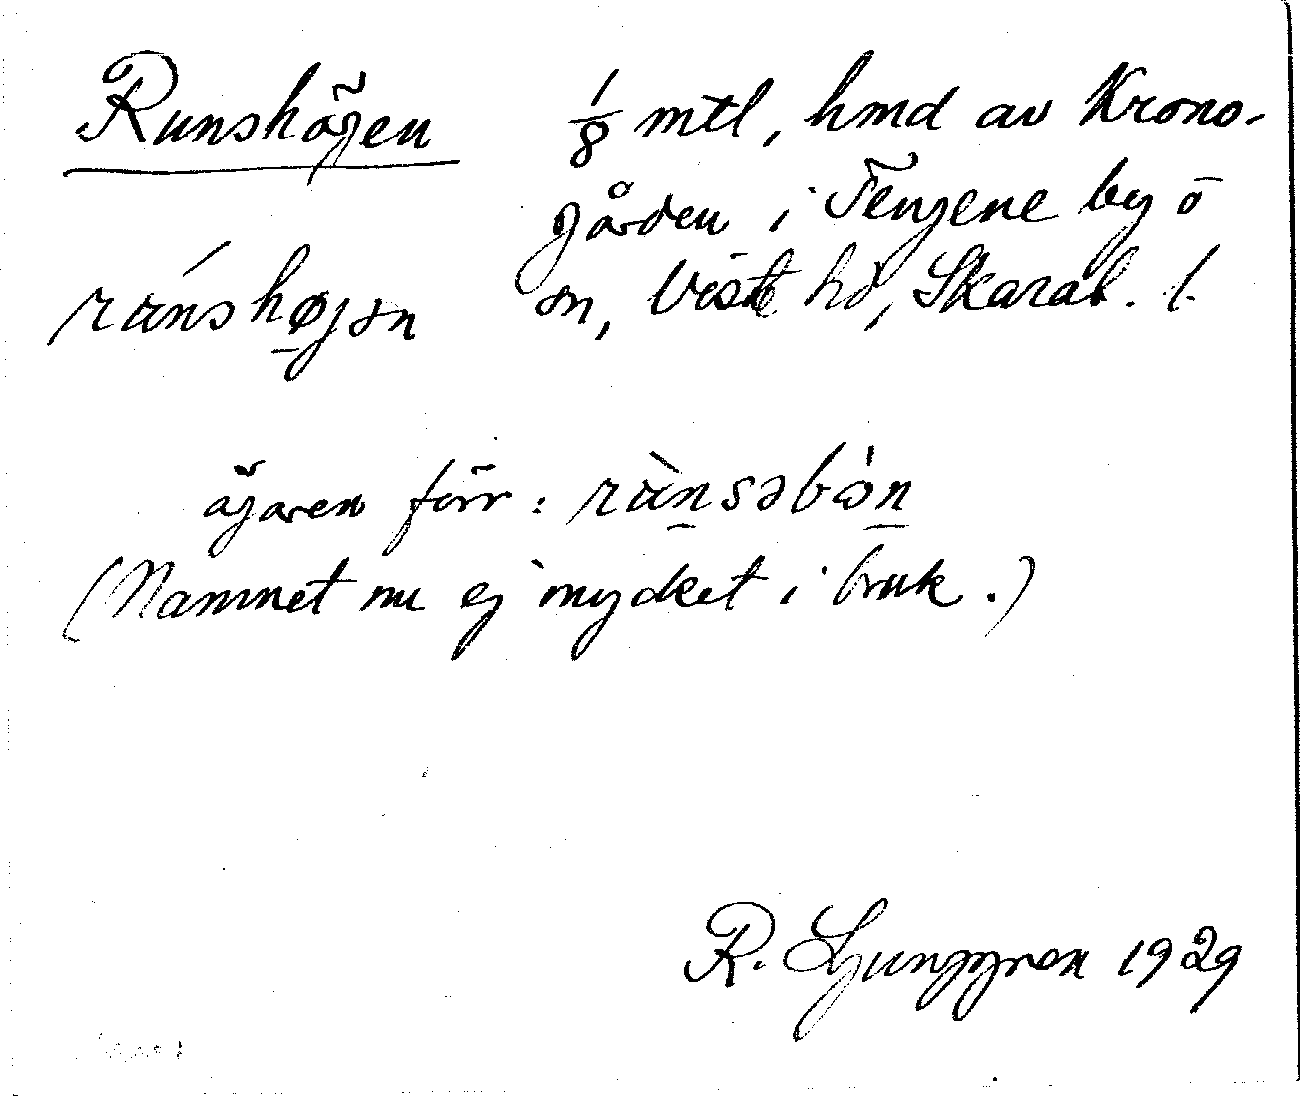 Runshögen 1/8 mtl, hmd av Krono-
gården i Tengene by o
sn, Viste hd, Skarab. l.
runshøjən
ägaren förr: runsəbón
(Namnet nu ej mycket i bruk.)
R. Ljunggren 1929